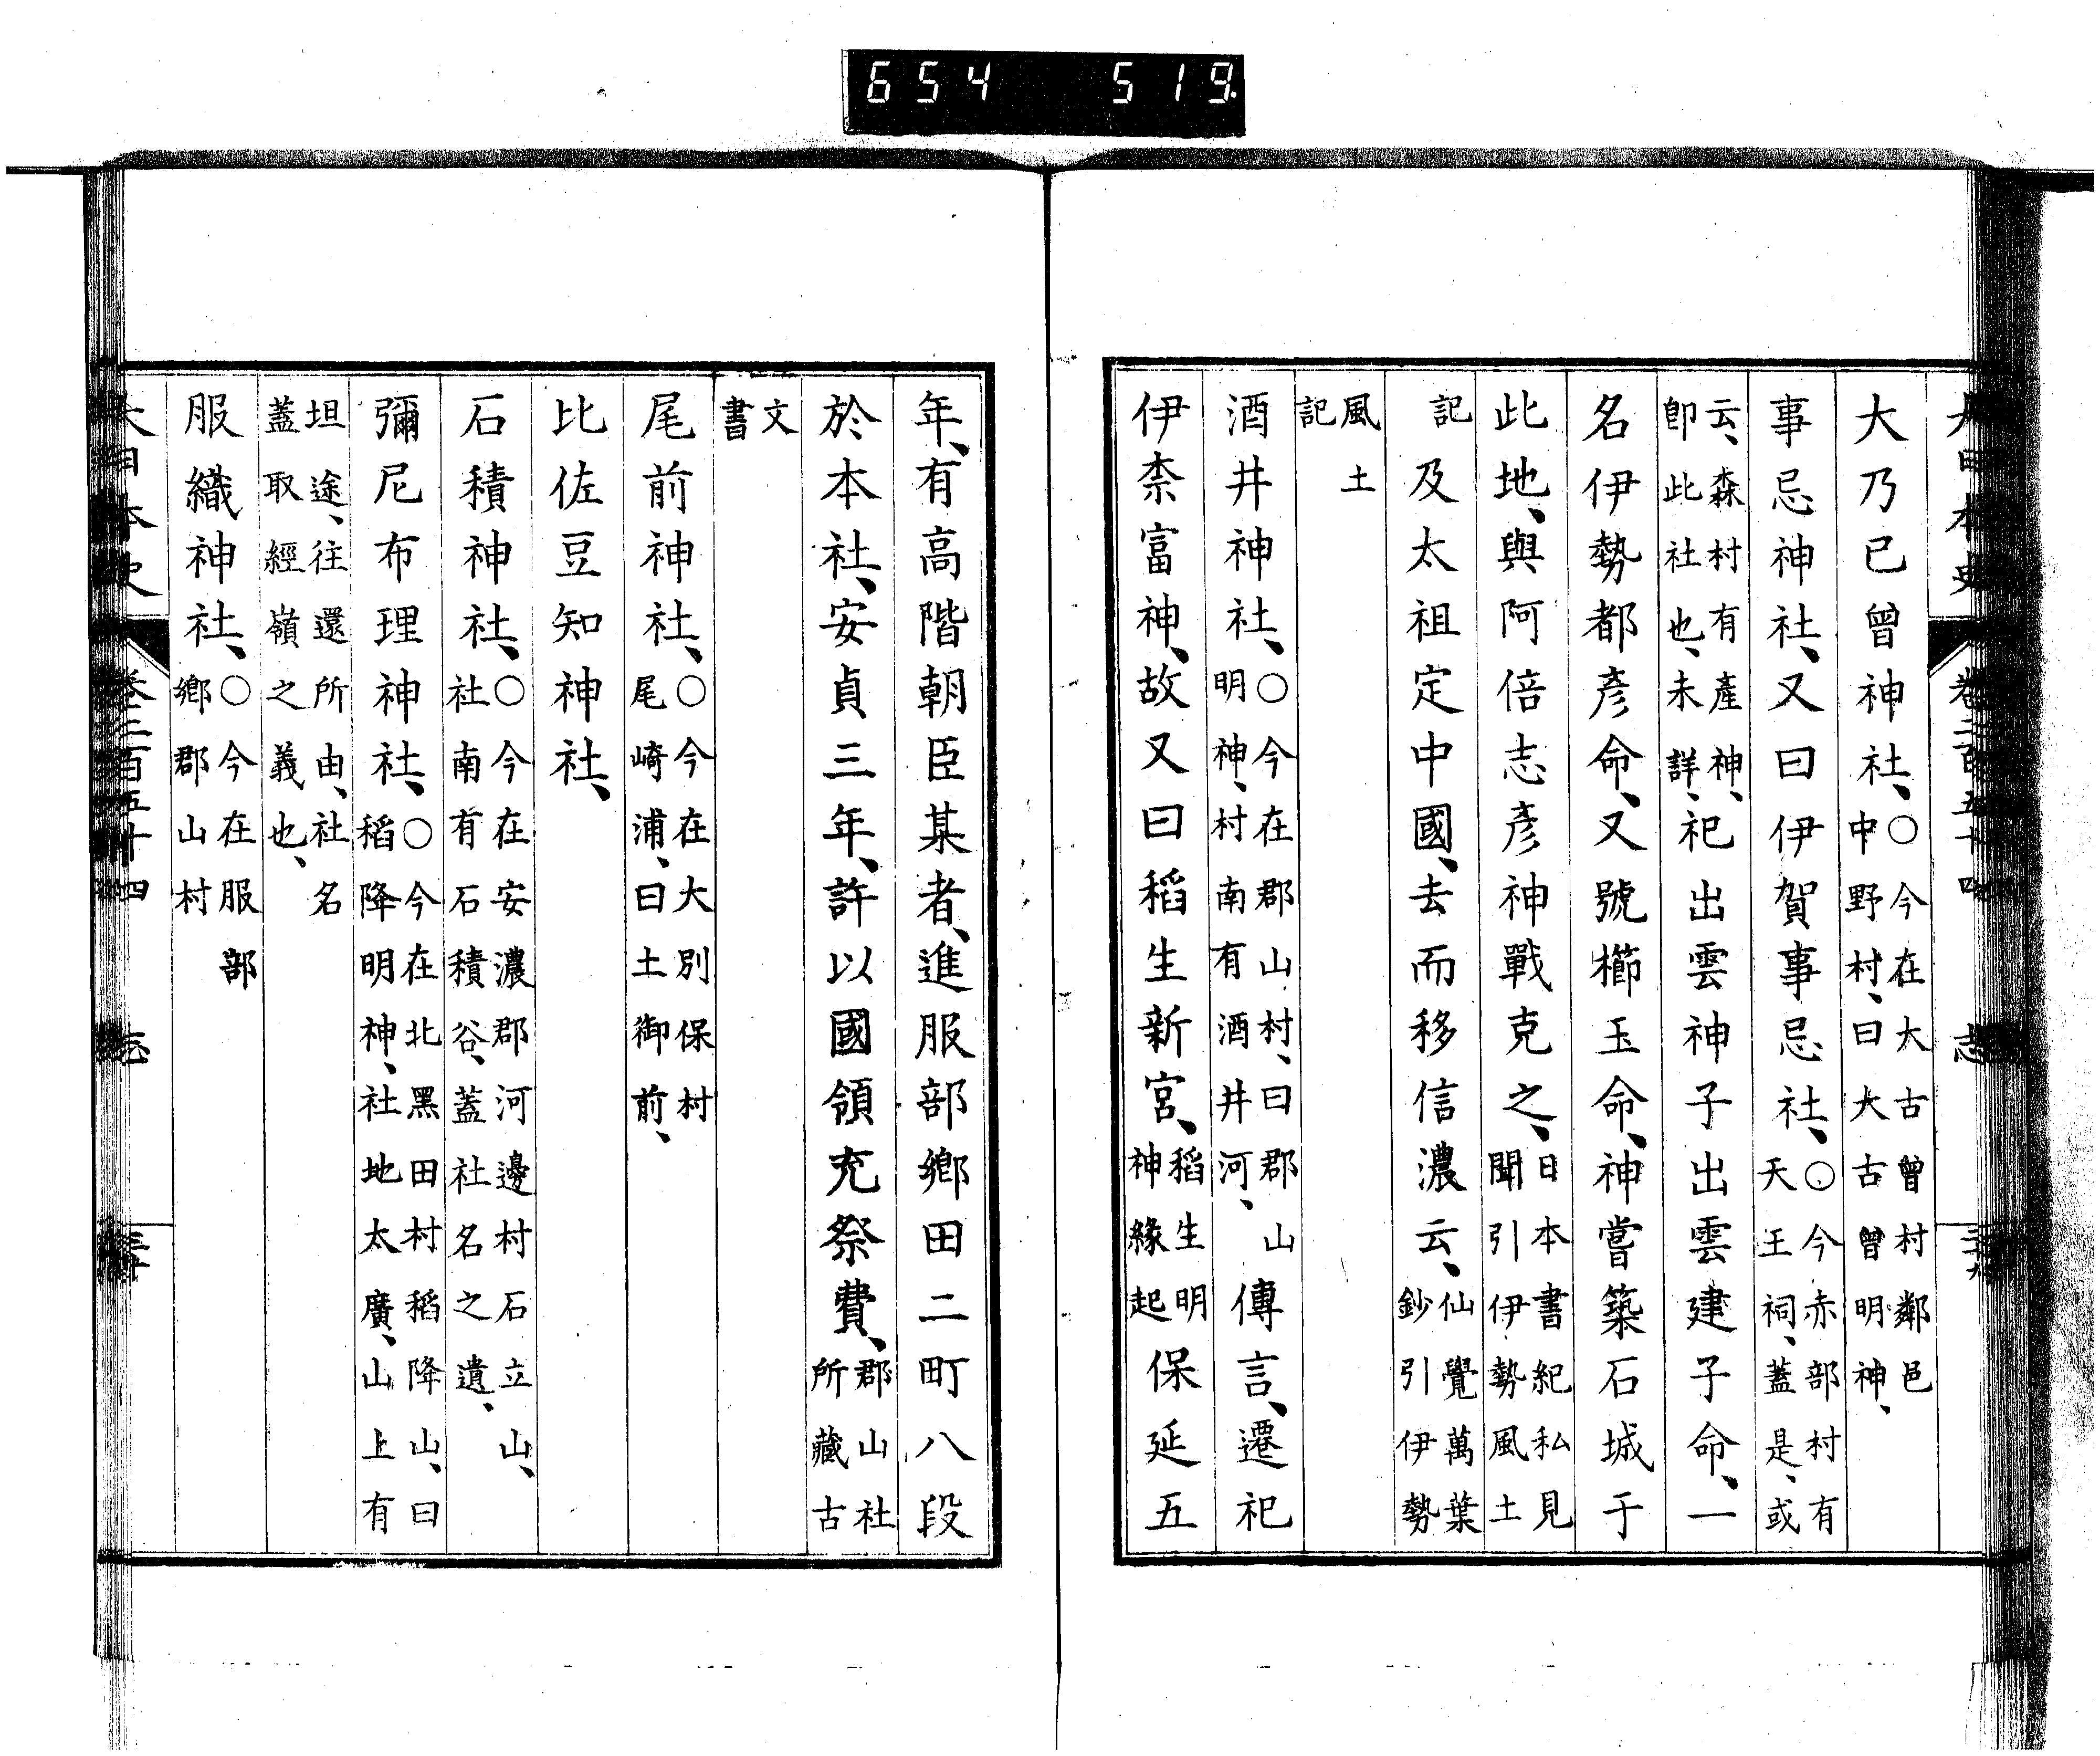 654 519
大日本史 卷二百五十四 志
大乃已曾神社、○今在大古曾村鄰邑中野村、曰大古曾明神、
事忌神社、又曰伊賀事忌社、○今赤部村有天王祠、蓋是、或
云、森村有產神、卽此社也、未詳、祀出雲神子出雲建子命、一
名伊勢都彥命、又號櫛玉命、神嘗築石城于
此地、與阿倍志彥神戰克之、日本書紀私見聞引伊勢風土
記及太祖定中國、去而移信濃云、仙覺萬葉鈔引伊勢
風土記
酒井神社、○今在郡山村、曰郡山明神、村南有酒井河、傳言、遷祀
伊柰富神、故又曰稻生新宮、稻生明神緣起保延五
年、有高階朝臣某者、進服部鄉田二町八段
於本社、安貞三年、許以國領充祭費、郡山社所藏古
文書
尾前神社、○今在大別保村尾崎浦、曰土御前、
比佐豆知神社、
石積神社、○今在安濃郡河邊村石立山、社南有石積谷、蓋社名之遺、
彌尼布理神社、○今在北黑田村稻降山、曰稻降明神、社地太廣、山上有
坦途、往還所由、社名蓋取經嶺之義也、
服織神社、○今在服部鄉郡山村
大日本史 卷二百五十四 志